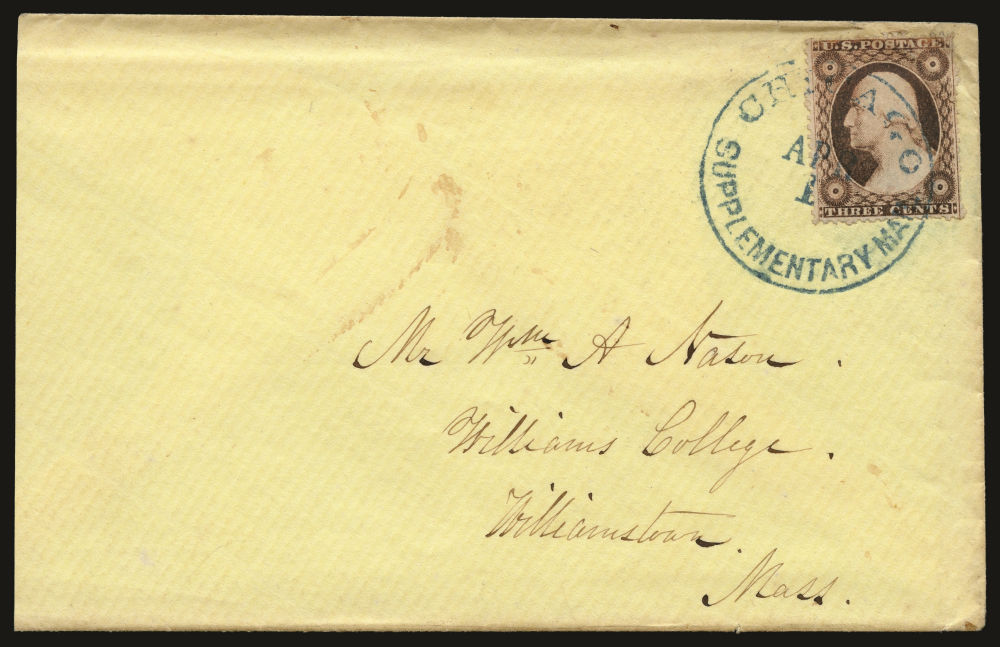 U.S. POSTAGE
THREE CENTS
CHICAGO
SUPPLEMENTARY MAIL
Mr Wm A Nason .
Williams College .
Williamstown
Mass.